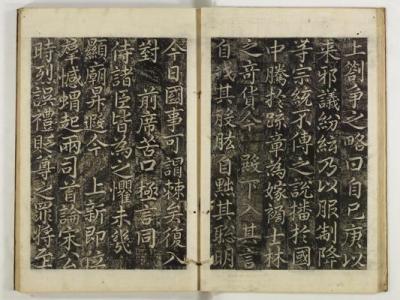 上劄爭之略曰自己庚以
來邪議紛紜乃以服制降
等宗統不傳之說播於國
中騰於疏章為嫁禍士林
之奇貨今 殿下入其言
自戕其股肱自黜其聰明
今日國事可謂棘矣復入
對 前席苦口極言同
侍諸臣皆為之懼未幾
顯廟昇遐今 上新即位
群憾蝟起兩司首論宋公
時烈誤禮貶尊之罪將至